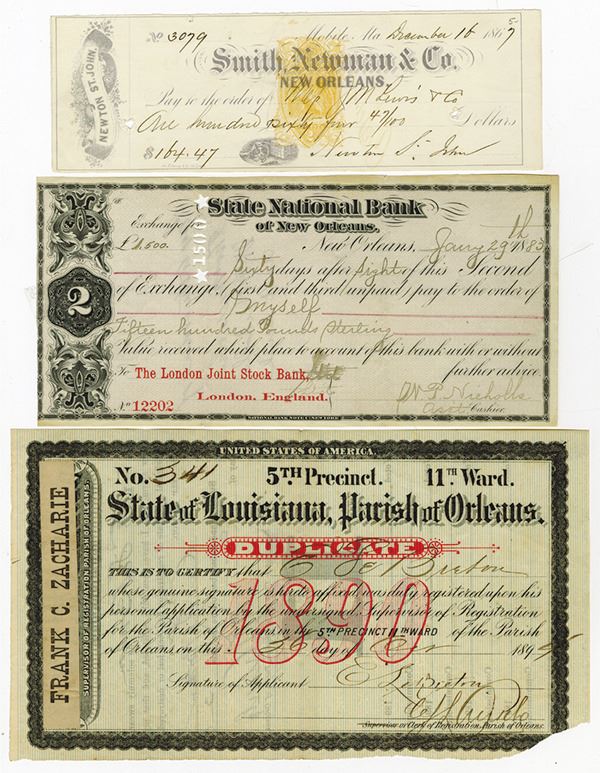 No 3079 Mobile, Ala December 16 1867 5
Smith, Newman & Co.
NEW ORLEANS.
NEWTON ST. JOHN.
Pay to the order of Lewis & Co
One hundred Sixty four 47/100 Dollars
$164.47 Newton St. John
State National Bank
of New Orleans.
Exchange for
£1,500. New Orleans, Jany 29th 1883
★1500★
2
Sixty days after Sight of this Second
of Exchange, (first and third unpaid) pay to the order
of Myself
Fifteen hundred Pounds Sterling
Value received which place to account of this bank with or without
further advice
To The London Joint Stock Bank, Ltd
London, England. W. P. Nicholls
No 12202 Asst Cashier.
NATIONAL BANK NOTE CO. NEW YORK
UNITED STATES OF AMERICA.
No. 341 5TH Precinct. 11TH Ward.
State of Louisiana, Parish of Orleans.
FRANK C. ZACHARIE
SUPERVISOR OF REGISTRATION PARISH OF ORLEANS.
DUPLICATE
1890
THIS IS TO CERTIFY that E Le Breton
whose genuine signature is hereto affixed was duly registered upon his
personal application by the undersigned Supervisor of Registration
for the Parish of Orleans in the 5TH PRECINCT 11TH WARD of the Parish
of Orleans on this 30 day of 189
Signature of Applicant E Le Breton
Supervisor or Clerk of Registration, Parish of Orleans.